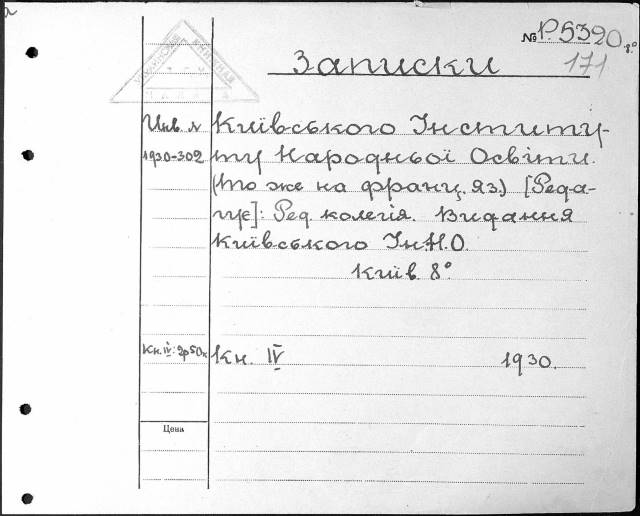 а
№ Р.5320 8.°
171
Записки
Инв. №
1930-302
Київського Інститу-
ту Народньої Освіти.
(то же на франц. яз.) [Реда-
гує]: Ред. колегія. Видання
Київського Ін.Н.О.
Київ. 8°
Кн. IV: 2р50к
Кн. IV 1930.
Цена